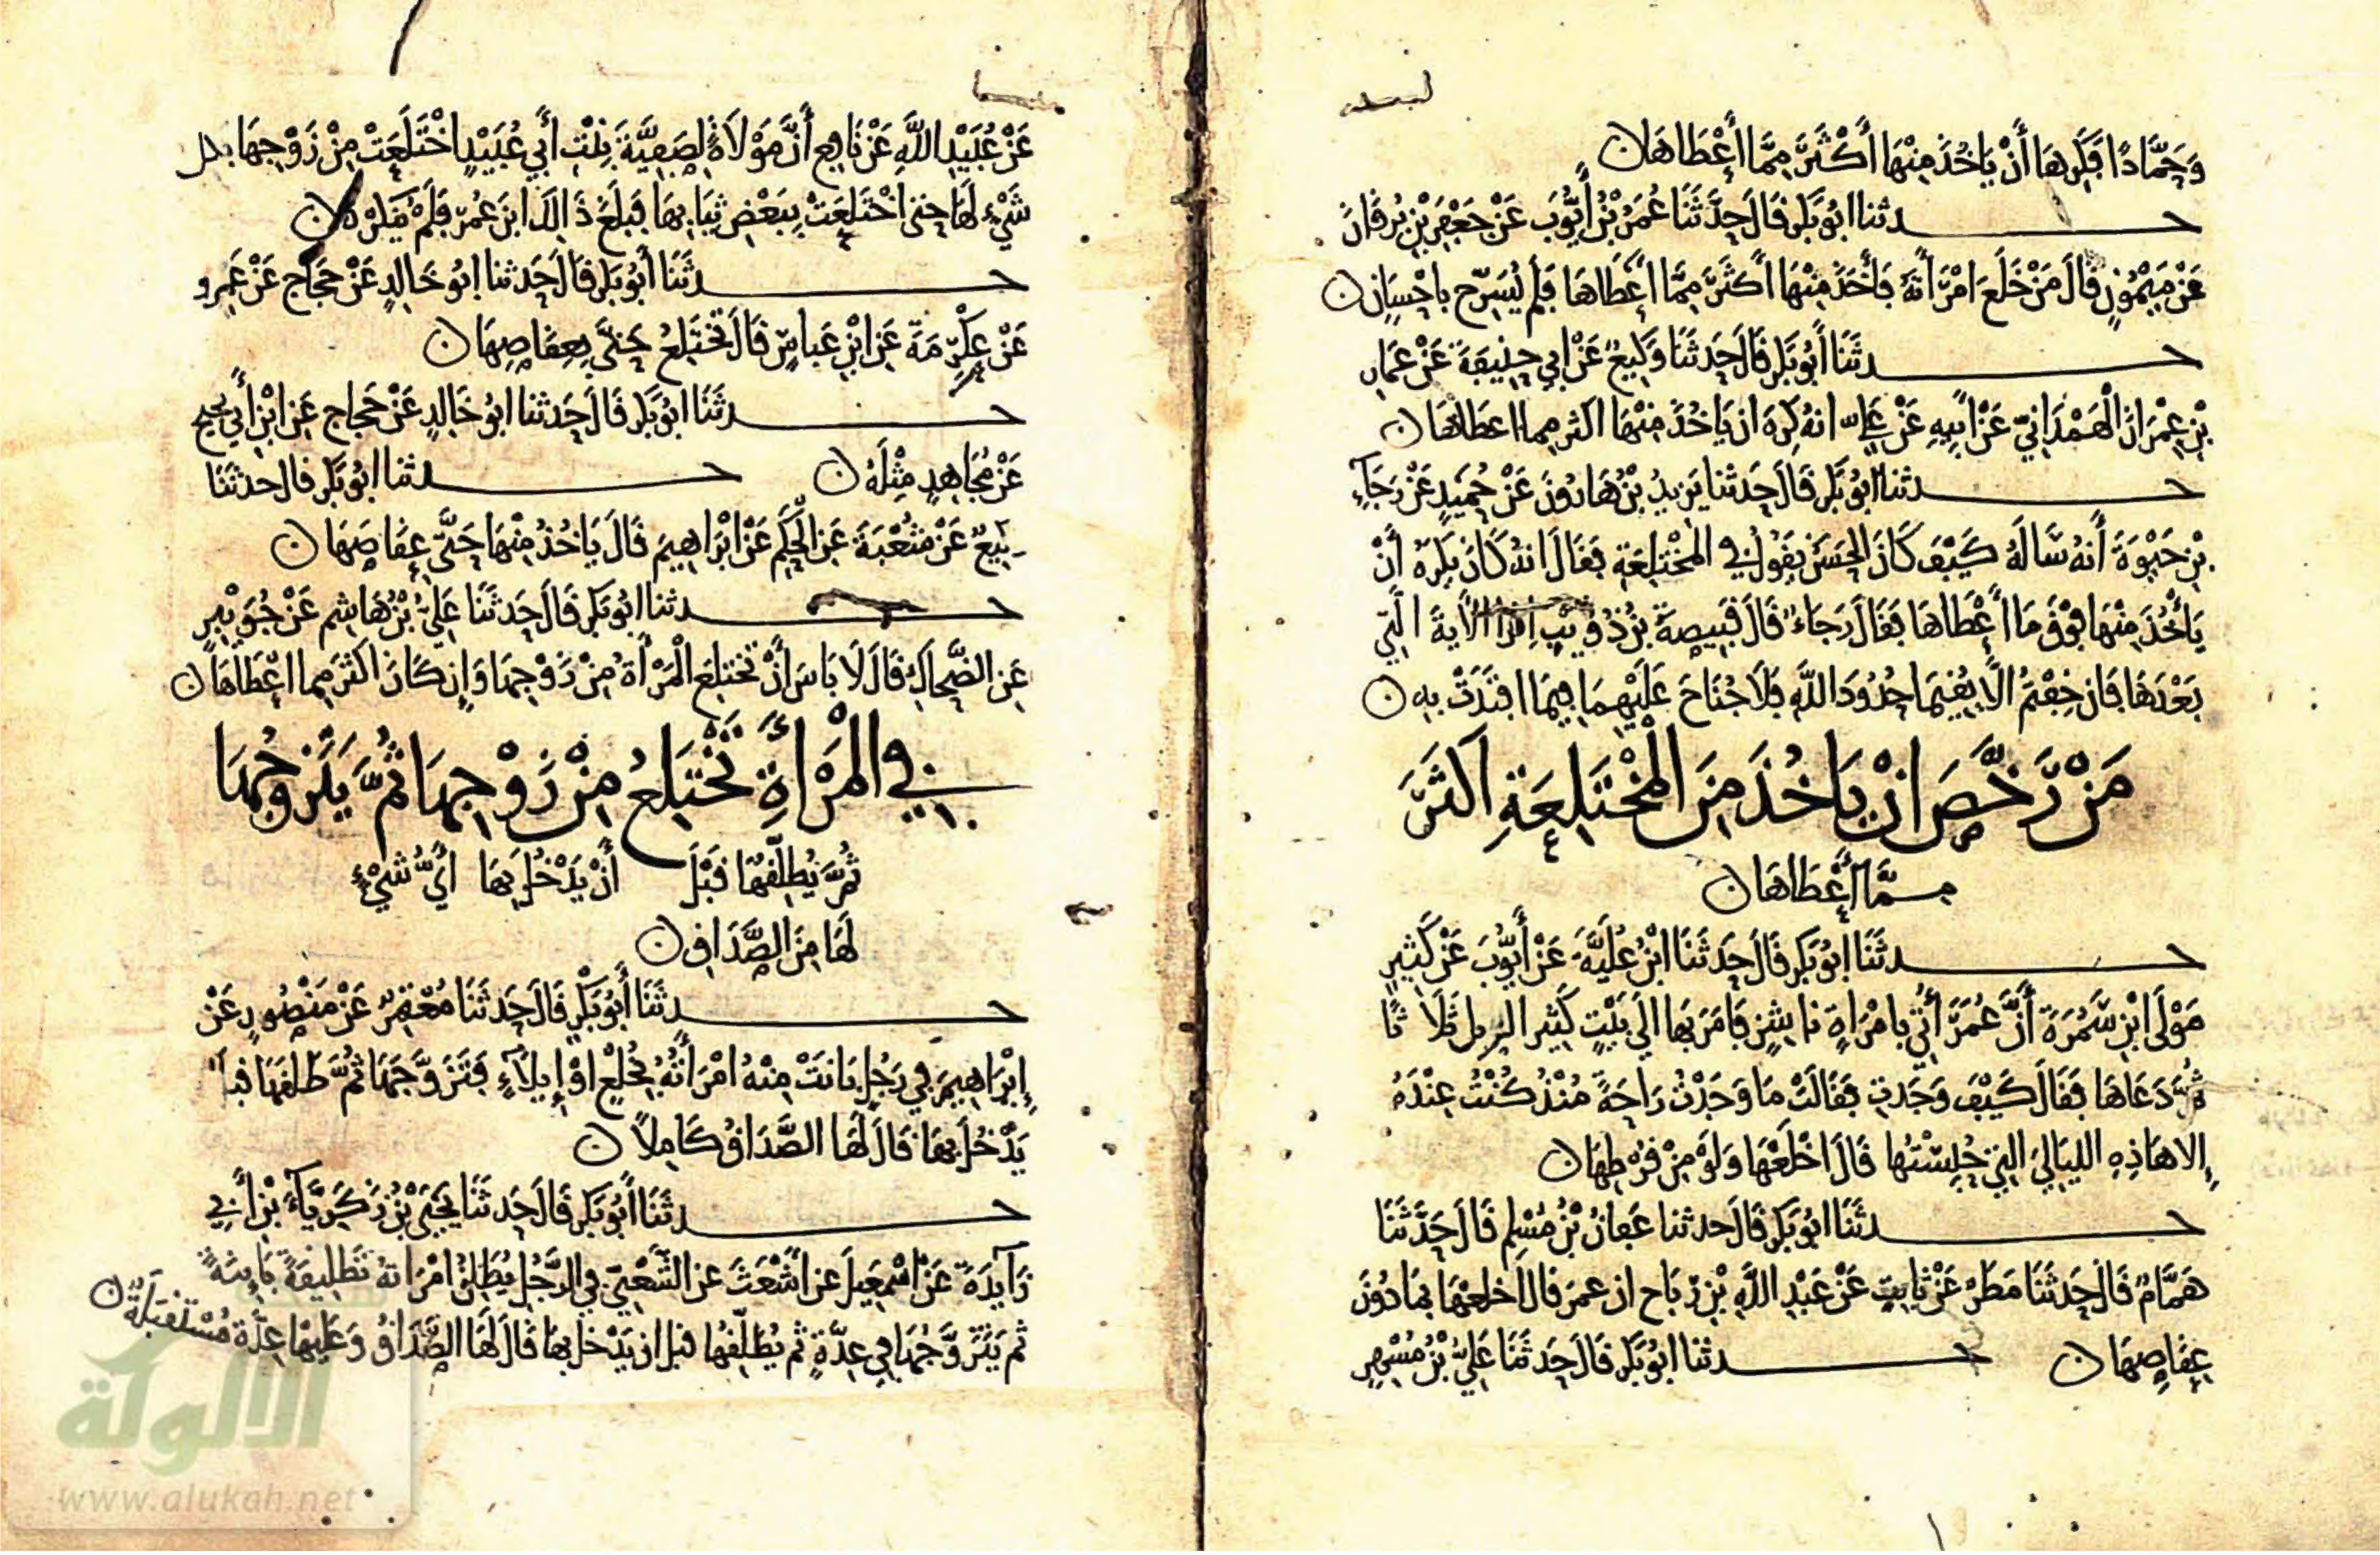 وَحَمَّادًا فَكَرِهَا أَنْ يَاخُذَ مِنْهَا أَكْثَرَ مِمَّا أَعْطَاهَا ن
حدثنا ابُو بَكرٍ قَالَ حَدَّثَنَا عُمَرُ بْنُ أَيُّوبَ عَنْ جَعْفَرِ بْنِ بُرْقَانَ
عَنْ مَيْمُونٍ قَالَ مَنْ خَلَعَ امْرَأَتَهُ فَأَخَذَ مِنْهَا أَكثَرَ مِمَّا أَعْطَاهَا فَلَم يُسَرِّح بِاحْسَانٍ ن
حدثَنَا أَبُو بَكرٍ قَالَ حَدثنَا وَكِيعٌ عَنْ ابِي حنِيفَةَ عَنْ عَمار
بْنِ عِمْرَانَ الْهَمْدَانِيِّ عَنْ ابِيهِ عَنْ عَلي انهُ كَرِهَ ان يَاخُذَ مِنْهَا اكثر مِما اعطَاهَا ن
حدثنا ابُو بَكرٍ قَالَ حَدثنا يَزِيدُ بْنُ هَارُونَ عَنْ حُمَيدٍ عَنْ رَجَآءِ
بْنِ حَيْوَةَ أَنهُ سَالَهُ كَيْفَ كَانَ الحَسَنُ يقولُ فِي المُخْتَلِعَةِ فَقَالَ انهُ كَانَ يَكرَهُ أَنْ
يَأْخُذَ مِنْهَا فَوْقَ مَا أَعْطَاهَا فقَالَ رَجَاءٌ قَالَ قَبِيصَةُ بْنُ ذُؤَيْبٍ اقرأ الآيَةَ الَّتِي
بَعْدَهَا فَان خِفْتمُ الَّا يُقِيمَا حُدُودَ اللَّهِ فَلَا جُنَاحَ عَلَيْهِمَا فِيمَا افْتَدَتْ بِهِ ن
مَنْ رَخَّصَ انْ يَاخُذَ مِنَ المُخْتَلِعَةِ اكثَرَ
مِمَّا أَعْطَاهَا ن
حدثَنَا ابُو بَكرٍ قَالَ حَدثَنَا ابْنُ عُلَيَّةَ عَنْ أَيُّوبَ عَنْ كَثِيرٍ
مَوْلَى ابْنِ سَمُرَةَ أَنَّ عُمَرَ أُتِيَ بِامْرَاةٍ نَاشِزٍ فَامَرَ بِهَا الَى بَيْتٍ كَثِيرِ الزبل ثَلَاثًا
ثُمَّ دَعَاهَا فَقَالَ كَيْفَ وَجَدتِ فَقَالَتْ مَا وَجَدْتُ رَاحَةً مُنْذُ كُنْتُ عِنْدَهُ
إِلا هَاذِهِ اللَيَالِيَ التِي حُبِسْتُهَا قَالَ اخْلَعْهَا وَلَوْ مِنْ قُرْطِهَا ن
حدثَنَا ابُو بَكرٍ قَالَ حدثنا عَفَانُ بْنُ مُسْلِمٍ قَالَ حَدَّثَنَا
هَمَّامٌ قَالَ حَدثَنَا مَطَرٌ عَنْ ثَابِتٍ عَنْ عَبْدِ اللَّهِ بْنِ رَبَاح ان عمرَ قَالَ اخلعهَا بِمَا دُونَ
عِقَاصِهَا ن حدثنا ابُو بَكرٍ قَالَ حَدثَنَا عَلِيُّ بْنُ مُسْهِرٍ
عَنْ عُبَيْدِ اللَّهِ عَنْ نَافِعٍ أَنَّ مَوْلَاةً لِصَفِيَّةَ بِنْتِ أَبِي عُبَيْدٍ اخْتَلَعَتْ مِنْ زَوْجِهَا بكل
شَيْءٍ لَهَا حتى اخْتَلَعَتْ بِبَعْضِ ثِيَابِهَا فَبلَغَ ذَالكَ ابنَ عُمَرَ فَلَمْ يُنكرْهُ ن
حدثَنَا أَبُو بَكرٍ قَالَ حَدثنا ابُو خَالِدٍ عَنْ حَجَّاجٍ عَنْ عَمرٍو
عَنْ عِكْرِمَةَ عَنِ ابْنِ عَباسٍ قَالَ تَخْتَلِعُ حَتَّى بِعِقَاصِهَا ن
حدثَنَا ابُو بَكرٍ قَالَ حَدثنا ابُو خَالِدٍ عَنْ حَجاجٍ عَنِ ابْنِ أَبِي نجيح
عَنْ مُجَاهِدٍ مِثْلَهُ ن حدثنا ابُو بَكرٍ قَالَ حدثَنَا
وكِيعٌ عَنْ شُعْبَةَ عَنِ الحَكَمِ عَنْ ابْرَاهِيمَ قَالَ يَاخُذُ مِنْهَا حَتَّى عِقَاصَهَا ن
حدثنا ابُو بَكرٍ قَالَ حَدثَنَا عَلِيُّ بْنُ هَاشِمٍ عَنْ جُوَيْبِرٍ
عَنِ الضَّحاكِ قَالَ لَا بَاسَ أَنْ تَختلِعَ الْمَرْأَةُ مِنْ زَوْجِهَا وَإِن كَانَ اكثَرَ مِما اعْطَاهَا ن
فِي الْمَرْأَةِ تَخْتَلِعُ مِنْ زَوْجِهَا ثُمَّ يَتَزَوَّجُهَا
ثُمَّ يُطَلِّقُهَا قَبْلَ أَنْ يَدْخُلَ بِهَا ايُّ شَيْءٍ
لَهَا مِنَ الصَّدَاقِ ن
حدثَنَا أَبُو بَكْرٍ قَالَ حَدثَنَا مُعْتَمِرٌ عَنْ مَنْصُورٍ عَنْ
إِبْرَاهِيمَ فِي رَجُلٍ بَانَتْ مِنْهُ امْرَأَتُهُ بِخُلْعٍ اوْ إِيلَآءٍ فَتَزَوَّجَهَا ثُمَّ طَلقَهَا قبلَ انْ
يَدْخُلَ بِهَا قَالَ لَهَا الصَّدَاقُ كَامِلًا ن
حدثَنَا أَبُو بَكرٍ قَالَ حَدثَنَا يَحْيَى بْنُ زَكَرِيَّآءَ بْنِ أَبِي
زَآيدَةَ عَنْ اسْمعِيلَ عن اشْعَثَ عَنِ الشَّعْبِيِّ فِي الرَّجُلِ يُطَلِّقُ امْرَاتهُ تَطْلِيقَةً بَايِنَةً
ثم يَتَزَوَّجُهَا فِي عِدَّةٍ ثم يُطَلِّقُهَا قبل ان يَدْخُلَ بِهَا قَالَ لَهَا الصَّدَاقُ وَعَلَيهَا عِدَّةٌ مُسْتَقْبَلَةٌ ن
الألوكة
www.alukah.net